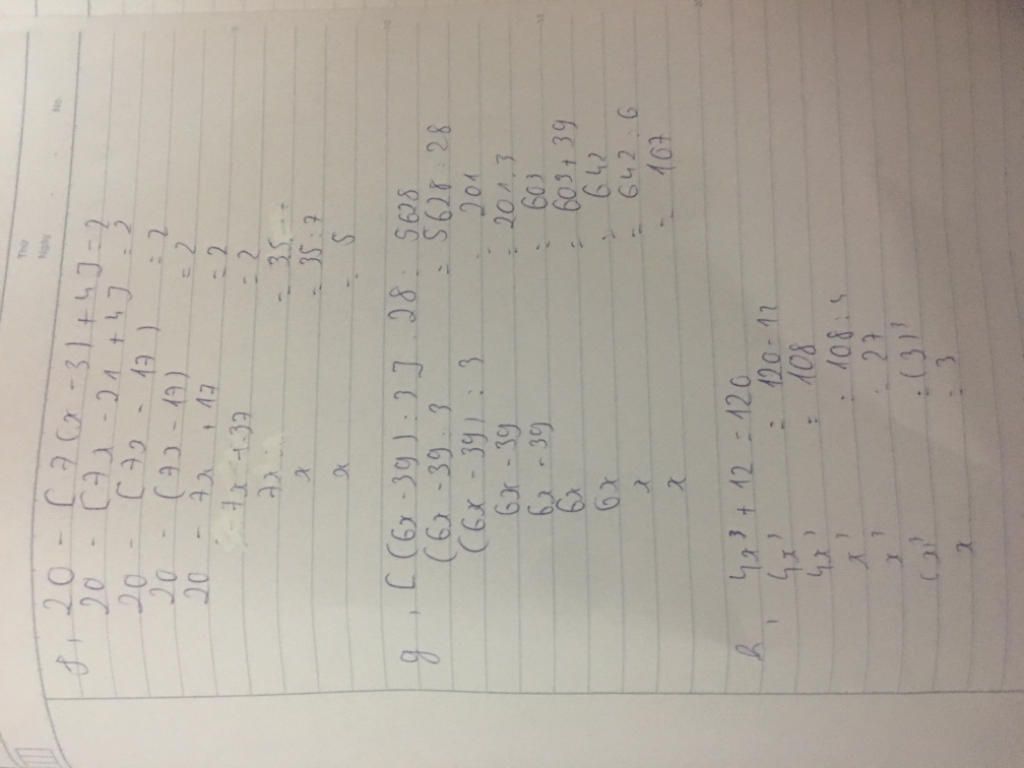 Thứ
Ngày
No.
f, 20 - [7(x - 3) + 4] = 2
20 - [7x - 21 + 4] = 2
20 - (7x - 17) = 2
20 - (7x - 17) = 2
20 - 7x + 17 = 2
- 7x + 37 = 2
7x = 35
x = 35 : 7
x = 5
g, [(6x - 39) : 3] . 28 = 5628
(6x - 39 : 3 = 5628 : 28
(6x - 39) : 3 = 201
6x - 39 = 201 . 3
6x - 39 = 603
6x = 603 + 39
6x = 642
x = 642 : 6
x = 107
h, 4x³ + 12 = 120
4x³ = 120 - 12
4x³ = 108
x³ = 108 : 4
x³ = 27
(x³ = (3)³
x = 3